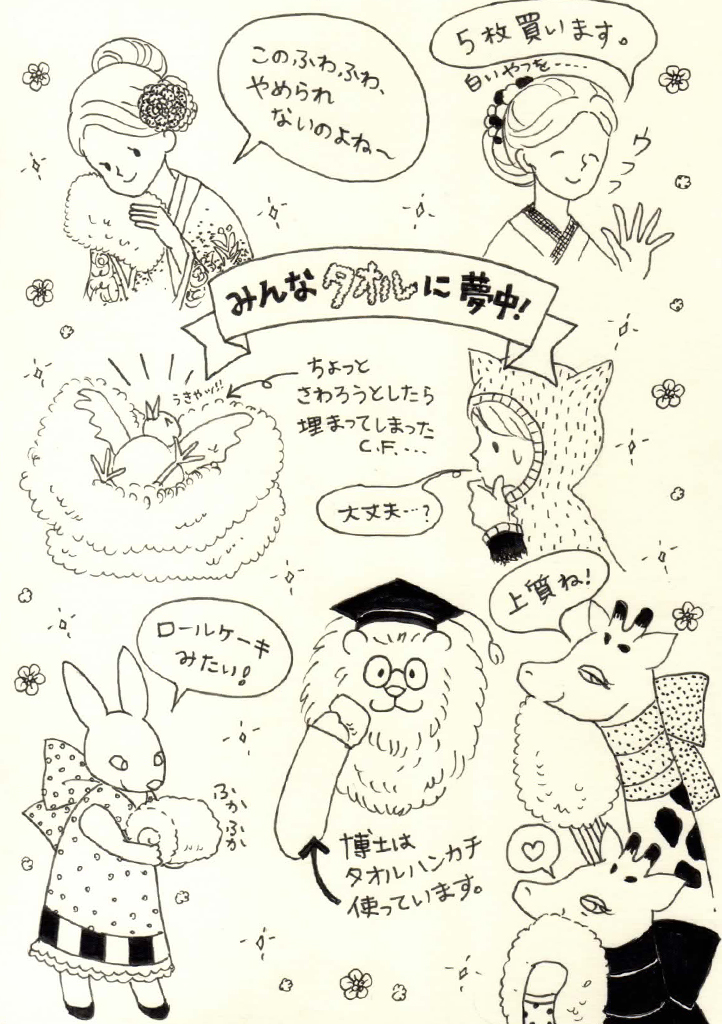 このふわふわ、
やめられ
ないのよね〜
5枚買います。
白いやつを‥‥
ウフフ
みんなタオルに夢中!
ちょっと
さわろうとしたら
埋まってしまった
C.F.‥‥
うきゃッ!!
大丈夫…?
上質ね!
ロールケーキ
みたい!
ふかふか
博士は
タオルハンカチ
使っています。